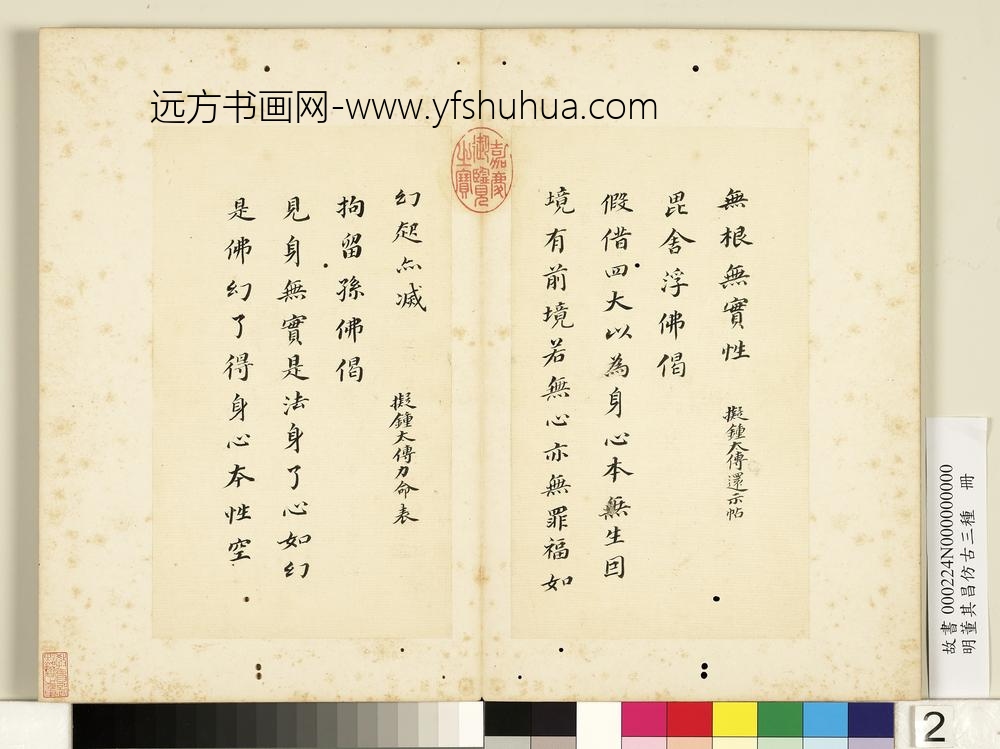 远方书画网-www.yfshuhua.com
嘉慶御覽之寶
無根無實性 擬鍾太傅還示帖
毘舍浮佛偈
假借四大以為身心本無生因
境有前境若無心亦無罪福如
幻起亦滅 擬鍾太傅力命表
拘留孫佛偈
見身無實是法身了心如幻
是佛幻了得身心本性空
故書 000224N000000000
明董其昌仿古三種 冊
2